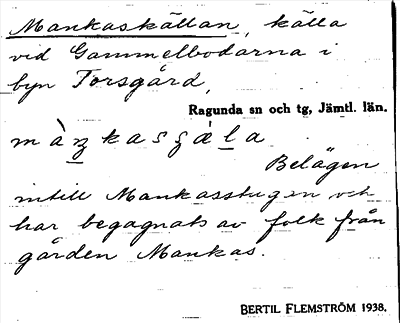 Mankaskällan, källa
vid Gammelbodarna i
byn Torsgård,
Ragunda sn och tg, Jämtl. län.
Belägen
intill Mankasstugen och
har begagnats av folk från
gården Mankas.
BERTIL FLEMSTRÖM 1938.